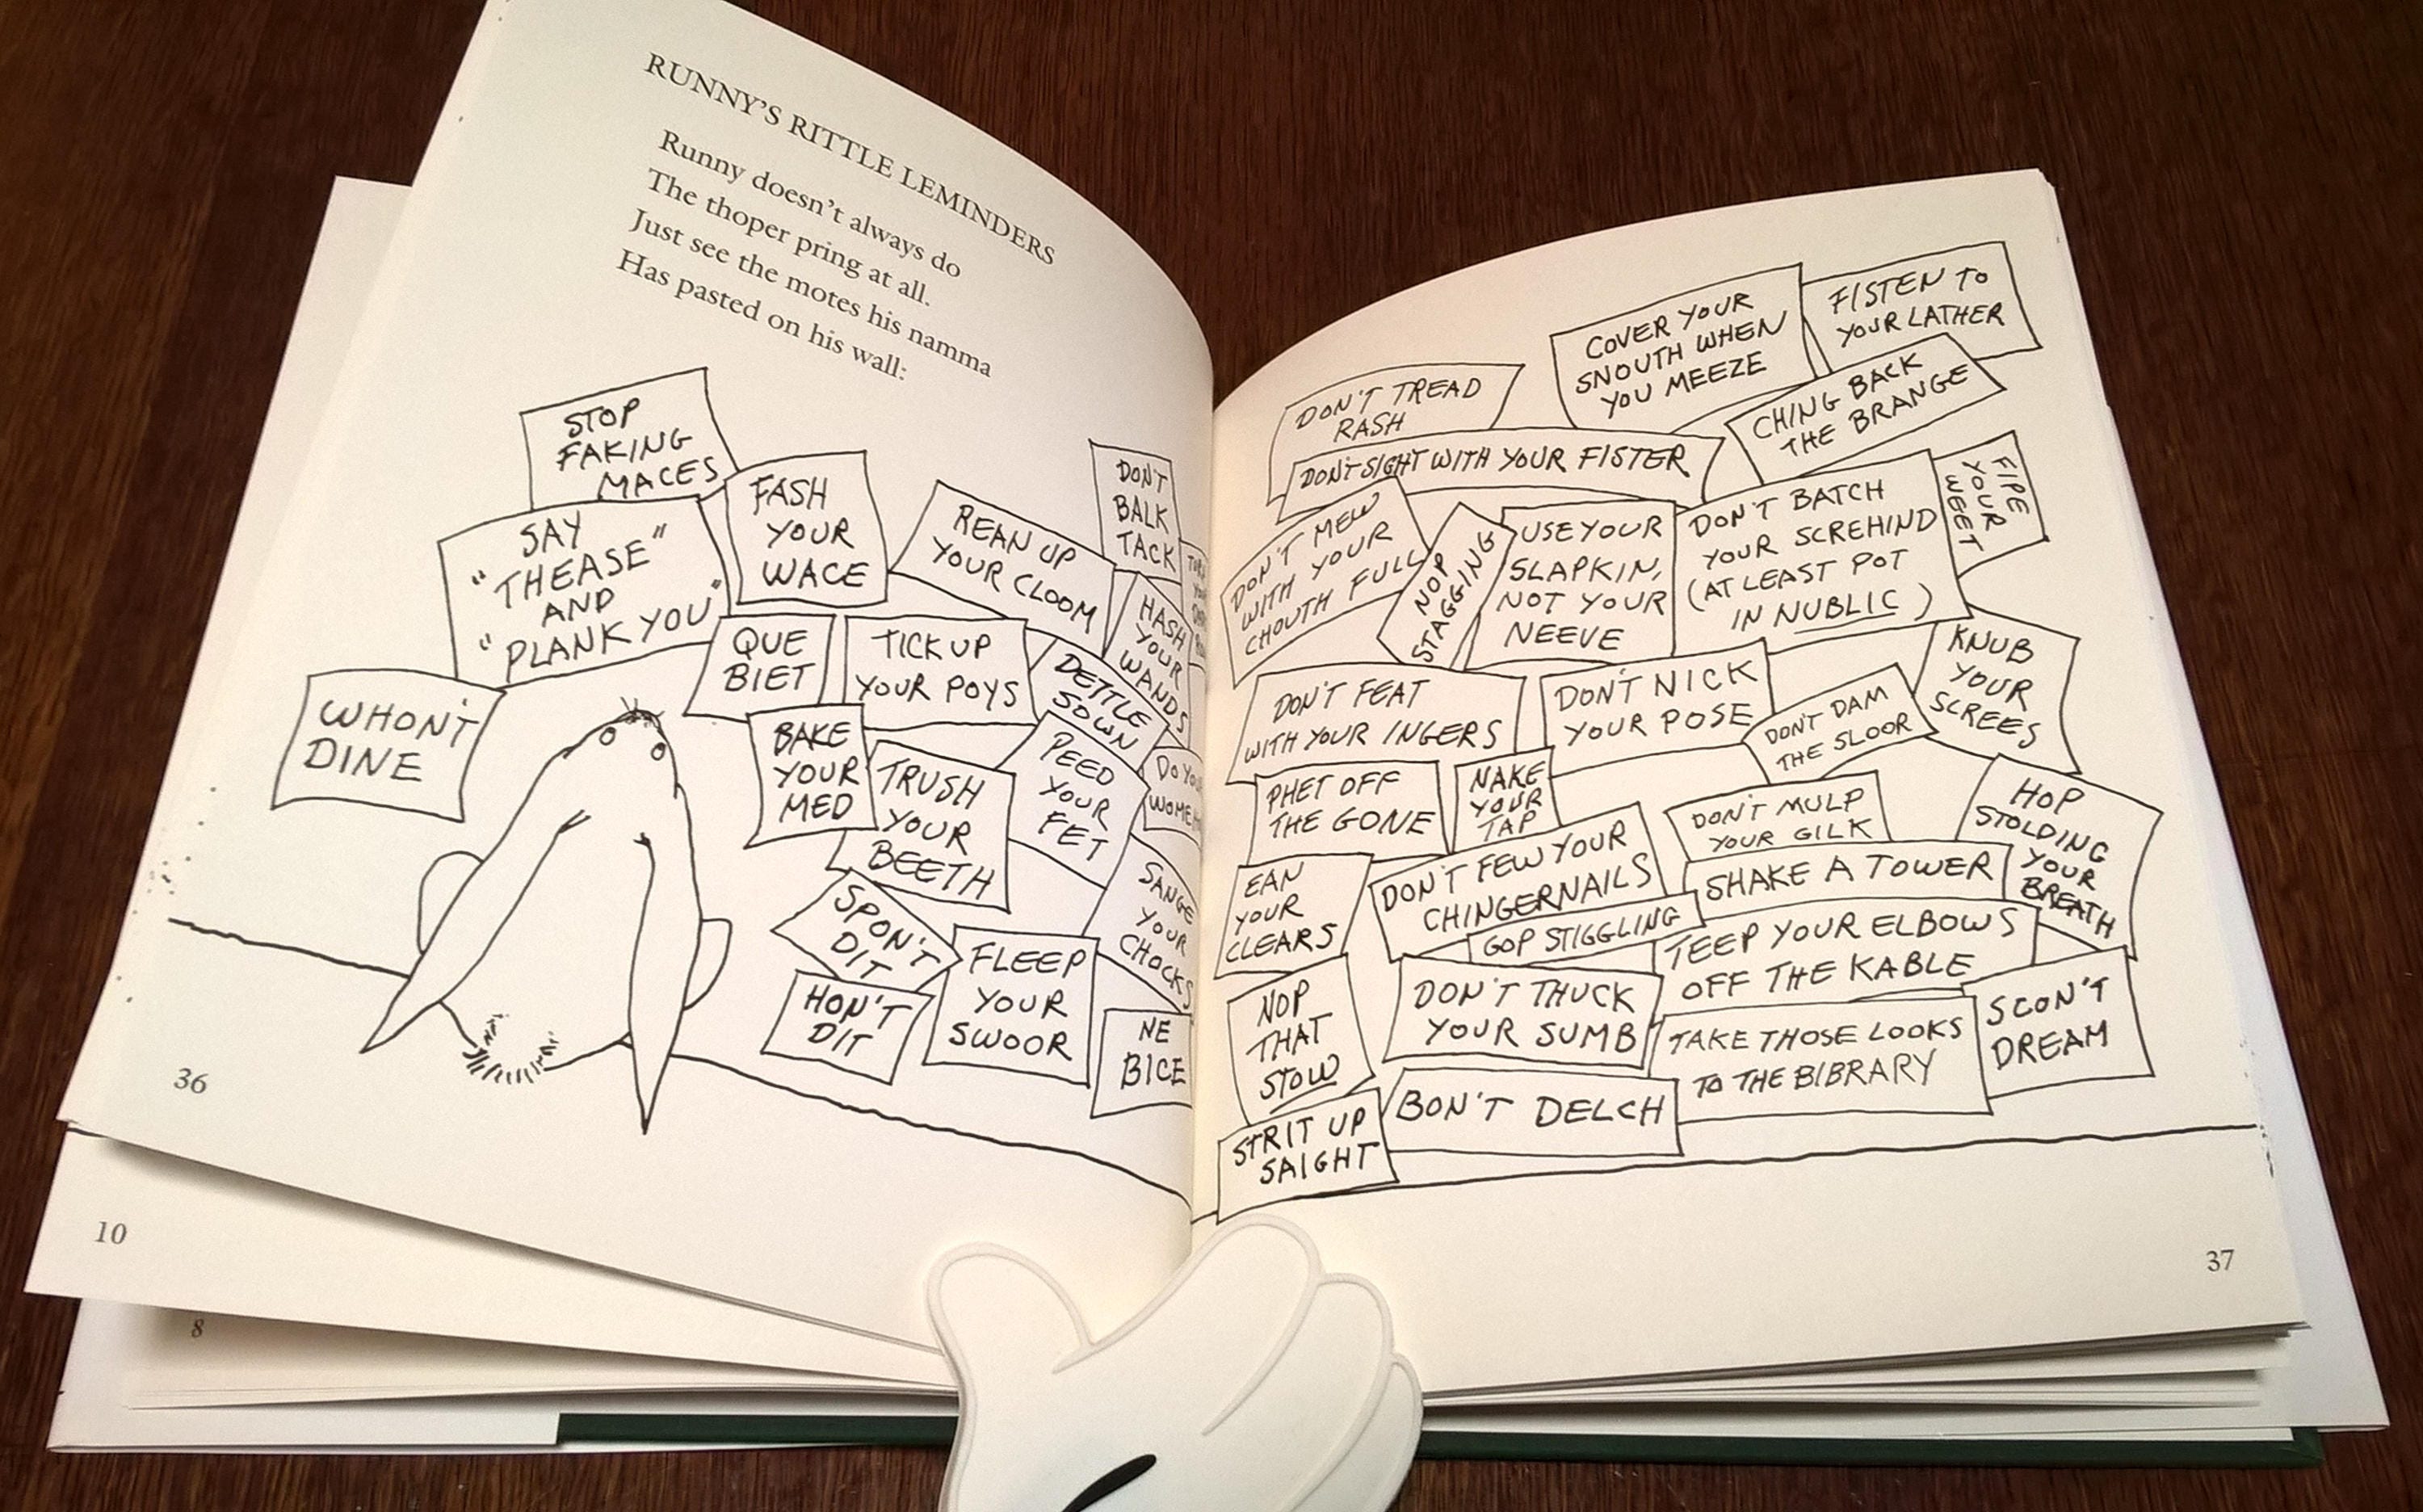 RUNNY'S RITTLE LEMINDERS
Runny doesn't always do
The thoper pring at all.
Just see the motes his namma
Has pasted on his wall:
STOP
FAKING
MACES
SAY
"THEASE"
AND
"PLANK YOU"
FASH
YOUR
WACE
REAN UP
YOUR CLOOM
DON'T
BALK
TACK
HASH
YOUR
WANDS
WHON'T
DINE
QUE
BIET
TICK UP
YOUR POYS
DETTLE
SOWN
BAKE
YOUR
MED
TRUSH
YOUR
BEETH
PEED
YOUR
FET
DO
SPON'T
DIT
HON'T
DIT
FLEEP
YOUR
SWOOR
SANGE
YOUR
CHOCKS
NE
BICE
36
10
8
COVER YOUR
SNOUTH WHEN
YOU MEEZE
FISTEN TO
YOUR LATHER
DON'T TREAD
RASH
CHING BACK
THE BRANGE
DON'T SIGHT WITH YOUR FISTER
FIPE
YOUR
WEET
DON'T MEW
WITH YOUR
CHOUTH FULL
NOP
STAGGING
USE YOUR
SLAPKIN,
NOT YOUR
NEEVE
DON'T BATCH
YOUR SCREHIND
(AT LEAST POT
IN NUBLIC)
KNUB
YOUR
SCREES
DON'T FEAT
WITH YOUR INGERS
DON'T NICK
YOUR POSE
DON'T DAM
THE SLOOR
PHET OFF
THE GONE
NAKE
YOUR
TAP
DON'T MULP
YOUR GILK
HOP
STOLDING
YOUR
BREATH
EAN
YOUR
CLEARS
DON'T FEW YOUR
CHINGERNAILS
SHAKE A TOWER
GOP STIGGLING
TEEP YOUR ELBOWS
OFF THE KABLE
NOP
THAT
STOW
DON'T THUCK
YOUR SUMB
TAKE THOSE LOOKS
TO THE BIBRARY
SCON'T
DREAM
STRIT UP
SAIGHT
BON'T DELCH
37